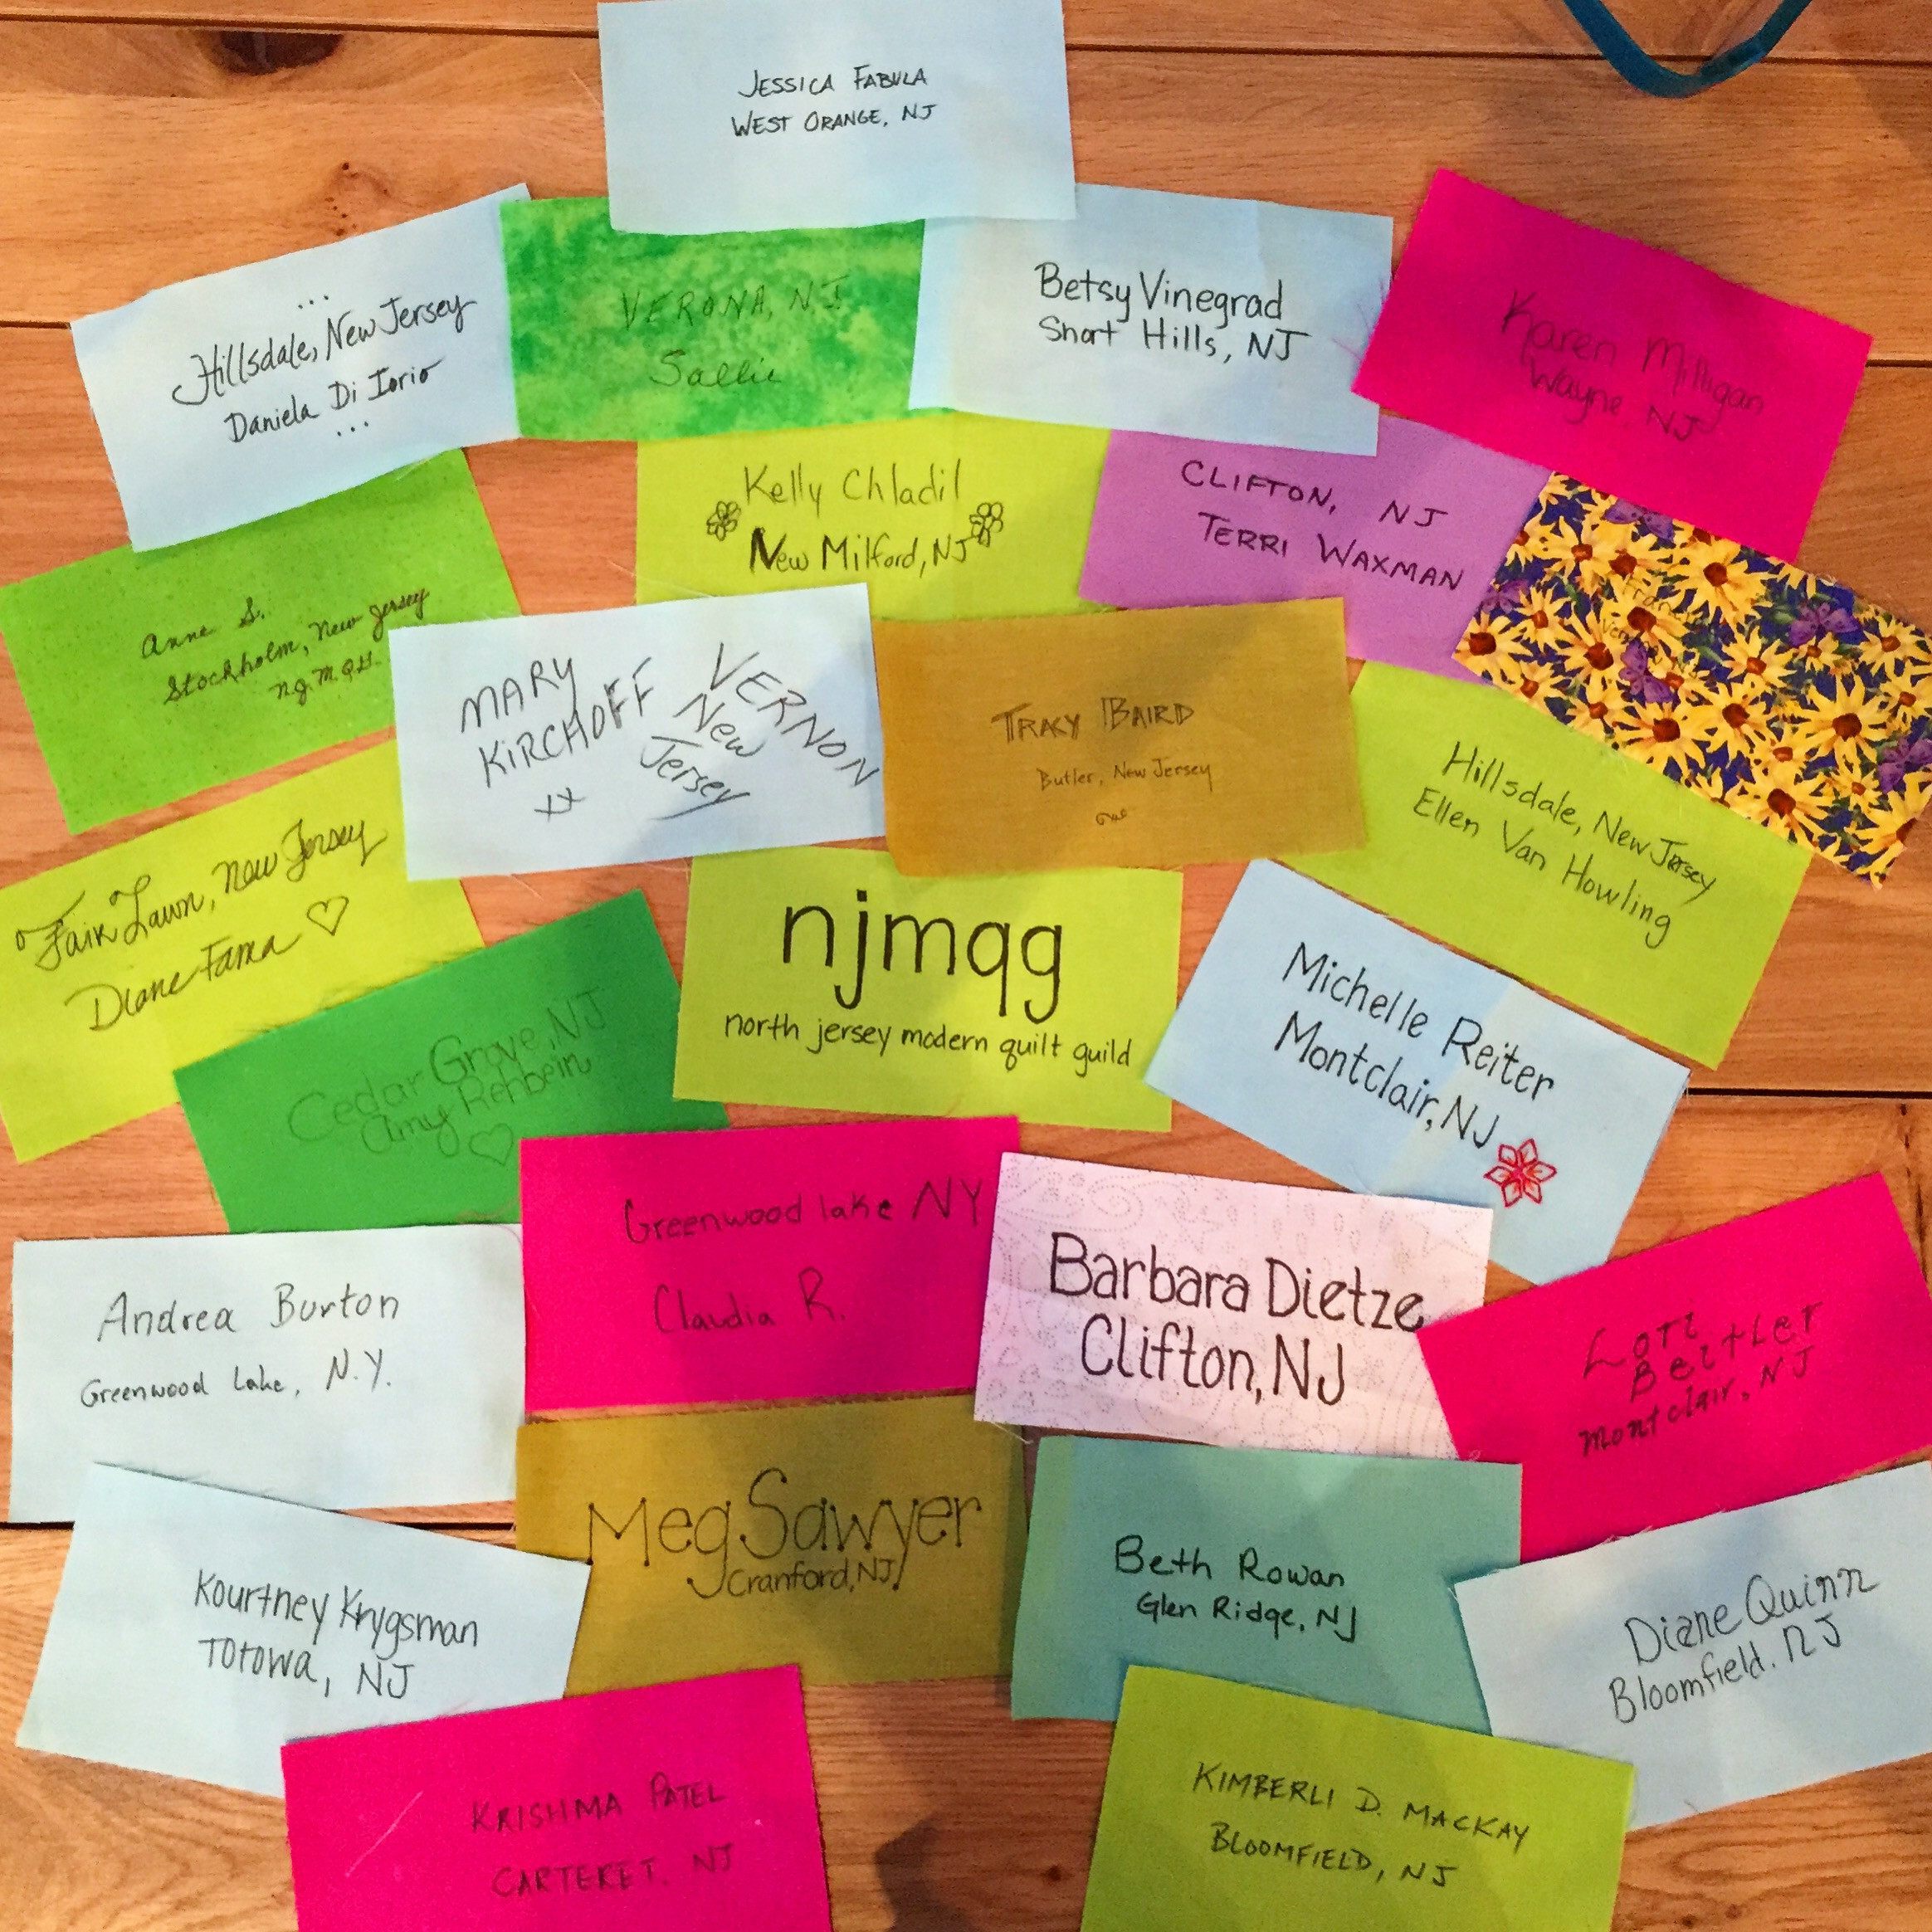 JESSICA FABULA
WEST ORANGE, NJ
Hillsdale, New Jersey
Daniela Di Iorio
VERONA, N.J.
Sallie
Betsy Vinegrad
Short Hills, NJ
Karen Milligan
Wayne, NJ
Kelly Chladil
New Milford, NJ
CLIFTON, NJ
TERRI WAXMAN
Anne S.
Stockholm, New Jersey
N.J.M.Q.G.
MARY
KIRCHOFF
XX
VERNON
New
Jersey
TRACY BAIRD
Butler, New Jersey
Hillsdale, New Jersey
Ellen Van Howling
Fair Lawn, New Jersey
Diane Fama
njmqg
north jersey modern quilt guild
Michelle Reiter
Montclair, NJ
Cedar Grove, NJ
Amy Rehbein
Greenwood lake NY
Claudia R.
Barbara Dietze
Clifton, NJ
Andrea Burton
Greenwood Lake, N.Y.
Lori
Beitler
Montclair, NJ
Meg Sawyer
Cranford, NJ
Beth Rowan
Glen Ridge, NJ
Kourtney Krygsman
TOTOWA, NJ
Diane Quinn
Bloomfield. NJ
KRISHMA PATEL
CARTERET. NJ
KIMBERLI D. MACKAY
BLOOMFIELD, NJ